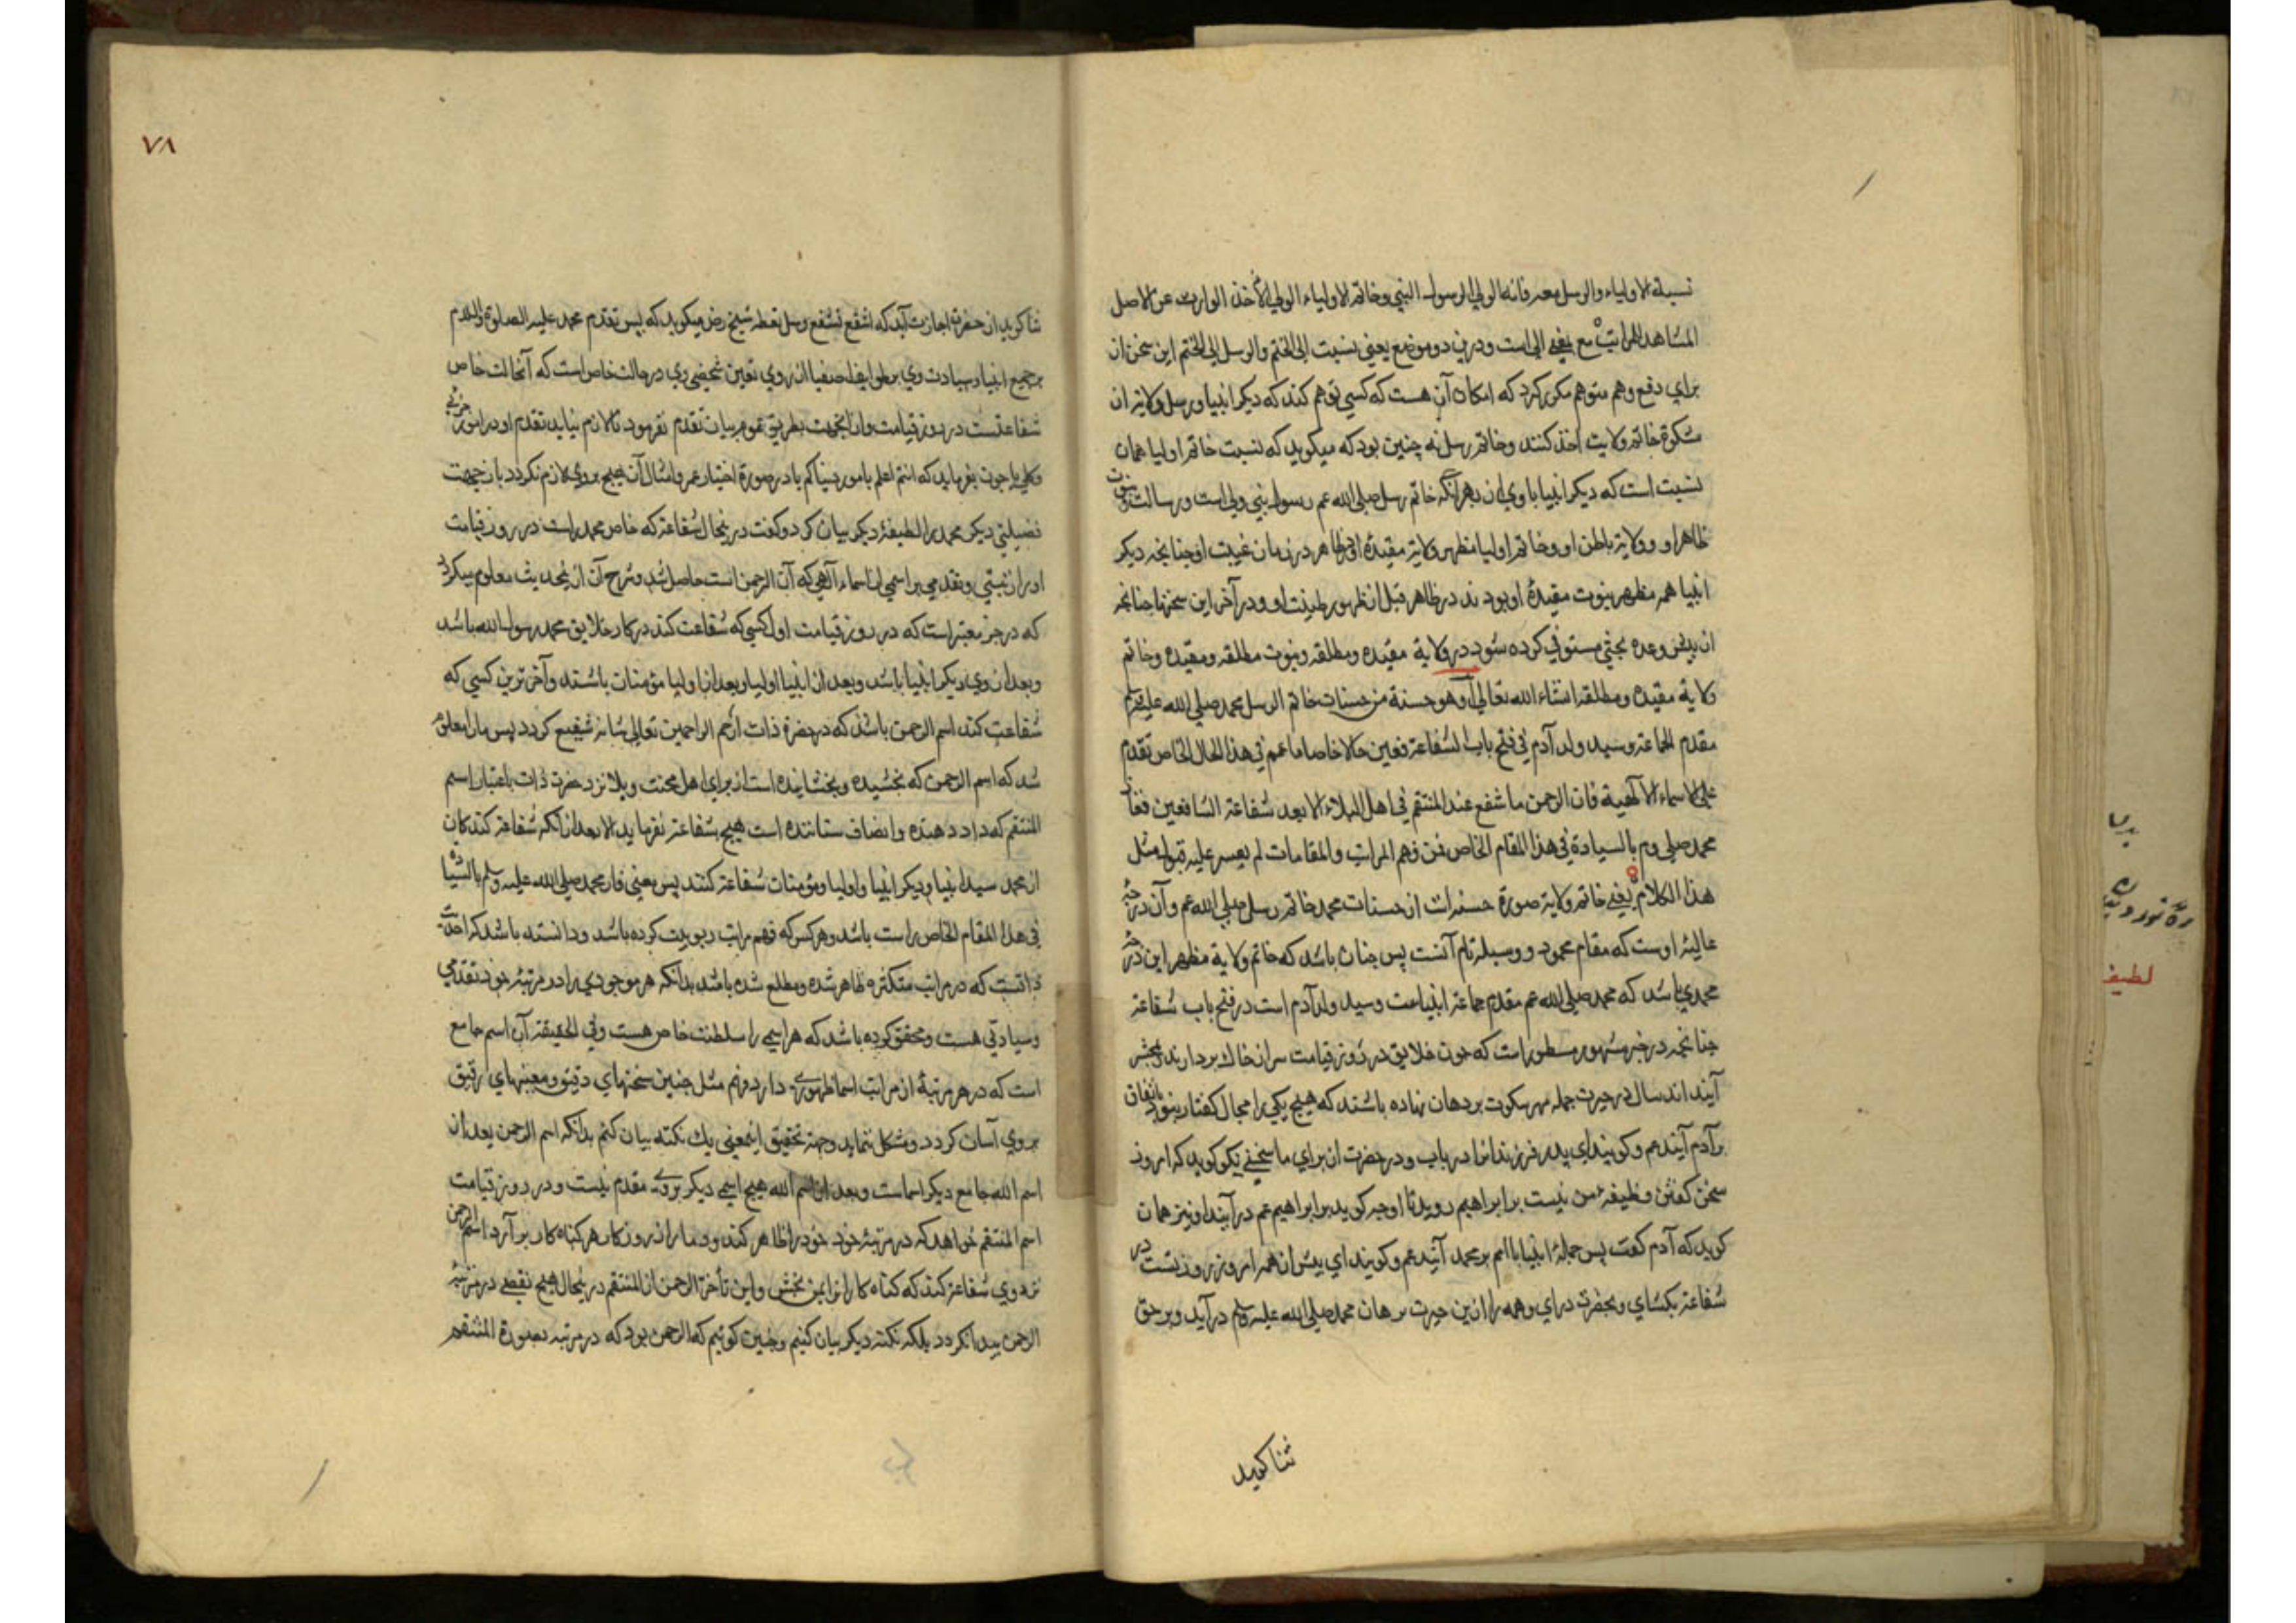 نسبة الاولياء والرسل معه فانه الولی الرسول النبي وخاتم الاولیاء الولي الآخذ الوارث عن الاصل
المشاهد للمراتب مع یعنی الی است ودرین دو موضع یعنی نسبت الی الختم والرسل الی الختم این سخن از
برای دفع وهم متوهم مکرر کرد که امکان آن هست که کسی توهم کند که دیکر انبیا ورسل ولایة از
مشکوة خاتم ولایت اخذ کنند وخاتم رسل نه چنین بود که میکوید که نسبت خاتم اولیا همان
نسبت است که دیکر انبیا با وی از بهر آنکه خاتم رسل صلی الله عم رسول نبي ولی است ورسالت ونبوت
ظاهر او وولایة باطن او وخاتم اولیا مظهر ولایة مقیدۀ او در ظاهر در زمان غیبت او چنانچه دیکر
انبیا همه مظهر نبوت مقیدۀ او بودند در ظاهر قبل از ظهور طینت او ودر آخر این سخنها چنانچه
ازین پیش وعده بحثی مستوفی کرده شود در ولایة مقیده ومطلقه ونبوت مطلقه ومقیده وخاتم
ولایة مقیده ومطلقه انشاء الله تعالی وهو حسنة من حسنات خاتم الرسل محمد صلی الله علیه وسلم
مقدم الجماعة وسید ولد آدم فی فتح باب الشفاعة فعین حالا خاصا ما عمم فی هذا الحال الخاص تقدم
علی الاسماء الالهیة فان الرحمن ما شفع عند المنتقم فی اهل البلاء الا بعد شفاعة الشافعین ففاز
محمد صلی وم بالسیادة فی هذا المقام الخاص فمن فهم المراتب والمقامات لم یعسر علیه قبول مثل
هذا الکلام یعنی خاتم ولایة صورة حسنه است از حسنات محمد خاتم رسل صلی الله عم وآن درجۀ
عالیۀ اوست که مقام محمود ووسیلة نام آنست پس چنان باشد که خاتم ولایة مظهر این درجۀ
محمدی باشد که محمد صلی الله عم مقدم جماعة انبیاست وسید ولد آدم است در فتح باب شفاعة
چنانچه در خبر مشهور مسطور است که چون خلایق در روز قیامت سر از خاک بردارند وبمحشر
آیند اند سال در حیرت جمله مهر سکوت بر دهان نهاده باشند که هیچ یکی را مجال کفتار نبود باتفاق
بر آدم آیند عم وکویند ای پدر فرزندانرا دریاب ودر حضرت از برای ما سخنی نیکو کوید که امروز
سخن کفتن وظیفۀ من نیست بر ابراهیم روید تا او چه کوید بر ابراهیم عم در آیند او نیز همان
کوید که آدم کفت پس جملۀ انبیا با امم بر محمد آیند عم وکویند ای پیش از همه امروز روز تست در
شفاعة بکشای وبحضرت درای وهمه را ازین حیرت برهان محمد صلی الله علیه وسلم در آید وبر حق
ثنا کوید
٧٨
ثنا کوید از حضرت اجازت آید که اشفع تشفع وسل تعطه شیخ رض میکوید که پس تقدم محمد علیه الصلوة والسلام
بر جمیع انبیا وسیادت وی برطوایف اصفیا از روی تعین شخصی وی در حالت خاص است که آنحالت خاص
شفاعتست در روز قیامت وازانجهت بطریق عموم بیان تقدم نفرمود تا لازم نیاید تقدم او در امور جزئی
وکلی چون بفرماید که انتم اعلم بامور دنیاکم یا در صورة اختیار عمر وامثال آن هیچ بروی لازم نکردد بازین جهت
فضیلتی دیکر محمد را لطیفۀ دیکر بیان کرد وکفت در ینحال شفاعة که خاص محمد راست در روز قیامت
اورا نسبتی وتقدمی بر اسمی از اسماء الهی که آن الرحمن است حاصل شد وشرح آن ازینحدیث معلوم میکردد
که در خبر معتبر است که در روز قیامت اول کسی که شفاعت کند در کار خلایق محمد رسول الله باشد
وبعد از وی دیکر انبیا باشد وبعد از انبیا اولیا وبعد از اولیا مؤمنان باشند وآخرترین کسی که
شفاعت کند اسم الرحمن باشد که در حضرة ذات ارحم الراحمین تعالی شانه شفیع کردد پس ما را معلوم
شد که اسم الرحمن که بخشیده وبخشاینده است از برای اهل محنت وبلا نزد حضرت ذات باعتبار اسم
المنتقم که داد دهنده وانصاف ستاننده است هیچ شفاعة نفرماید الا بعد از آنکه شفاعة کنندکان
از محمد سید انبیا ودیکر انبیا واولیا ومؤمنان شفاعة کنند پس یعنی فاز محمد صلی الله علیه وسلم بالسیادة
فی هذا المقام الخاص راست باشد وهر کس که فهم مراتب ربوبیت کرده باشد ودانسته باشد که احدیت
ذاتیست که در مراتب متکثره ظاهر شده ومطلع شده باشد بدانکه هر موجودی را در مرتبۀ خود تقدمی
وسیادتی هست ومحقق کرده باشد که هر اسمی را سلطنت خاص هست وفی الحقیقة آن اسم جامع
است که در هر مرتبۀ از مراتب اسما ظهوری دارد وفهم مثل چنین سخنهای دقیق ومعنیهای رقیق
بروی آسان کردد ومشکل ننماید وجهة تحقیق اینمعنی یک نکته بیان کنم بدانکه اسم الرحمن بعد از
اسم الله جامع دیکر اسماست وبعد از اسم الله هیچ اسمی دیکر بروی مقدم نیست ودر روز قیامت
اسم المنتقم خواهد که در مرتبۀ خود خود را ظاهر کند ودمار از روزکار هر کناه کار بر آرد اسم الرحمن
نزد وی شفاعة کند که کناه کارانرا بمن بخش واین تأخر الرحمن از المنتقم در ینحال هیچ نقصی در مرتبۀ
الرحمن پیدا نکردد بلکه نکتۀ دیکر بیان کنیم وچنین کوئیم که الرحمن بود که در مرتبه بصورة المنتقم
لطیفه